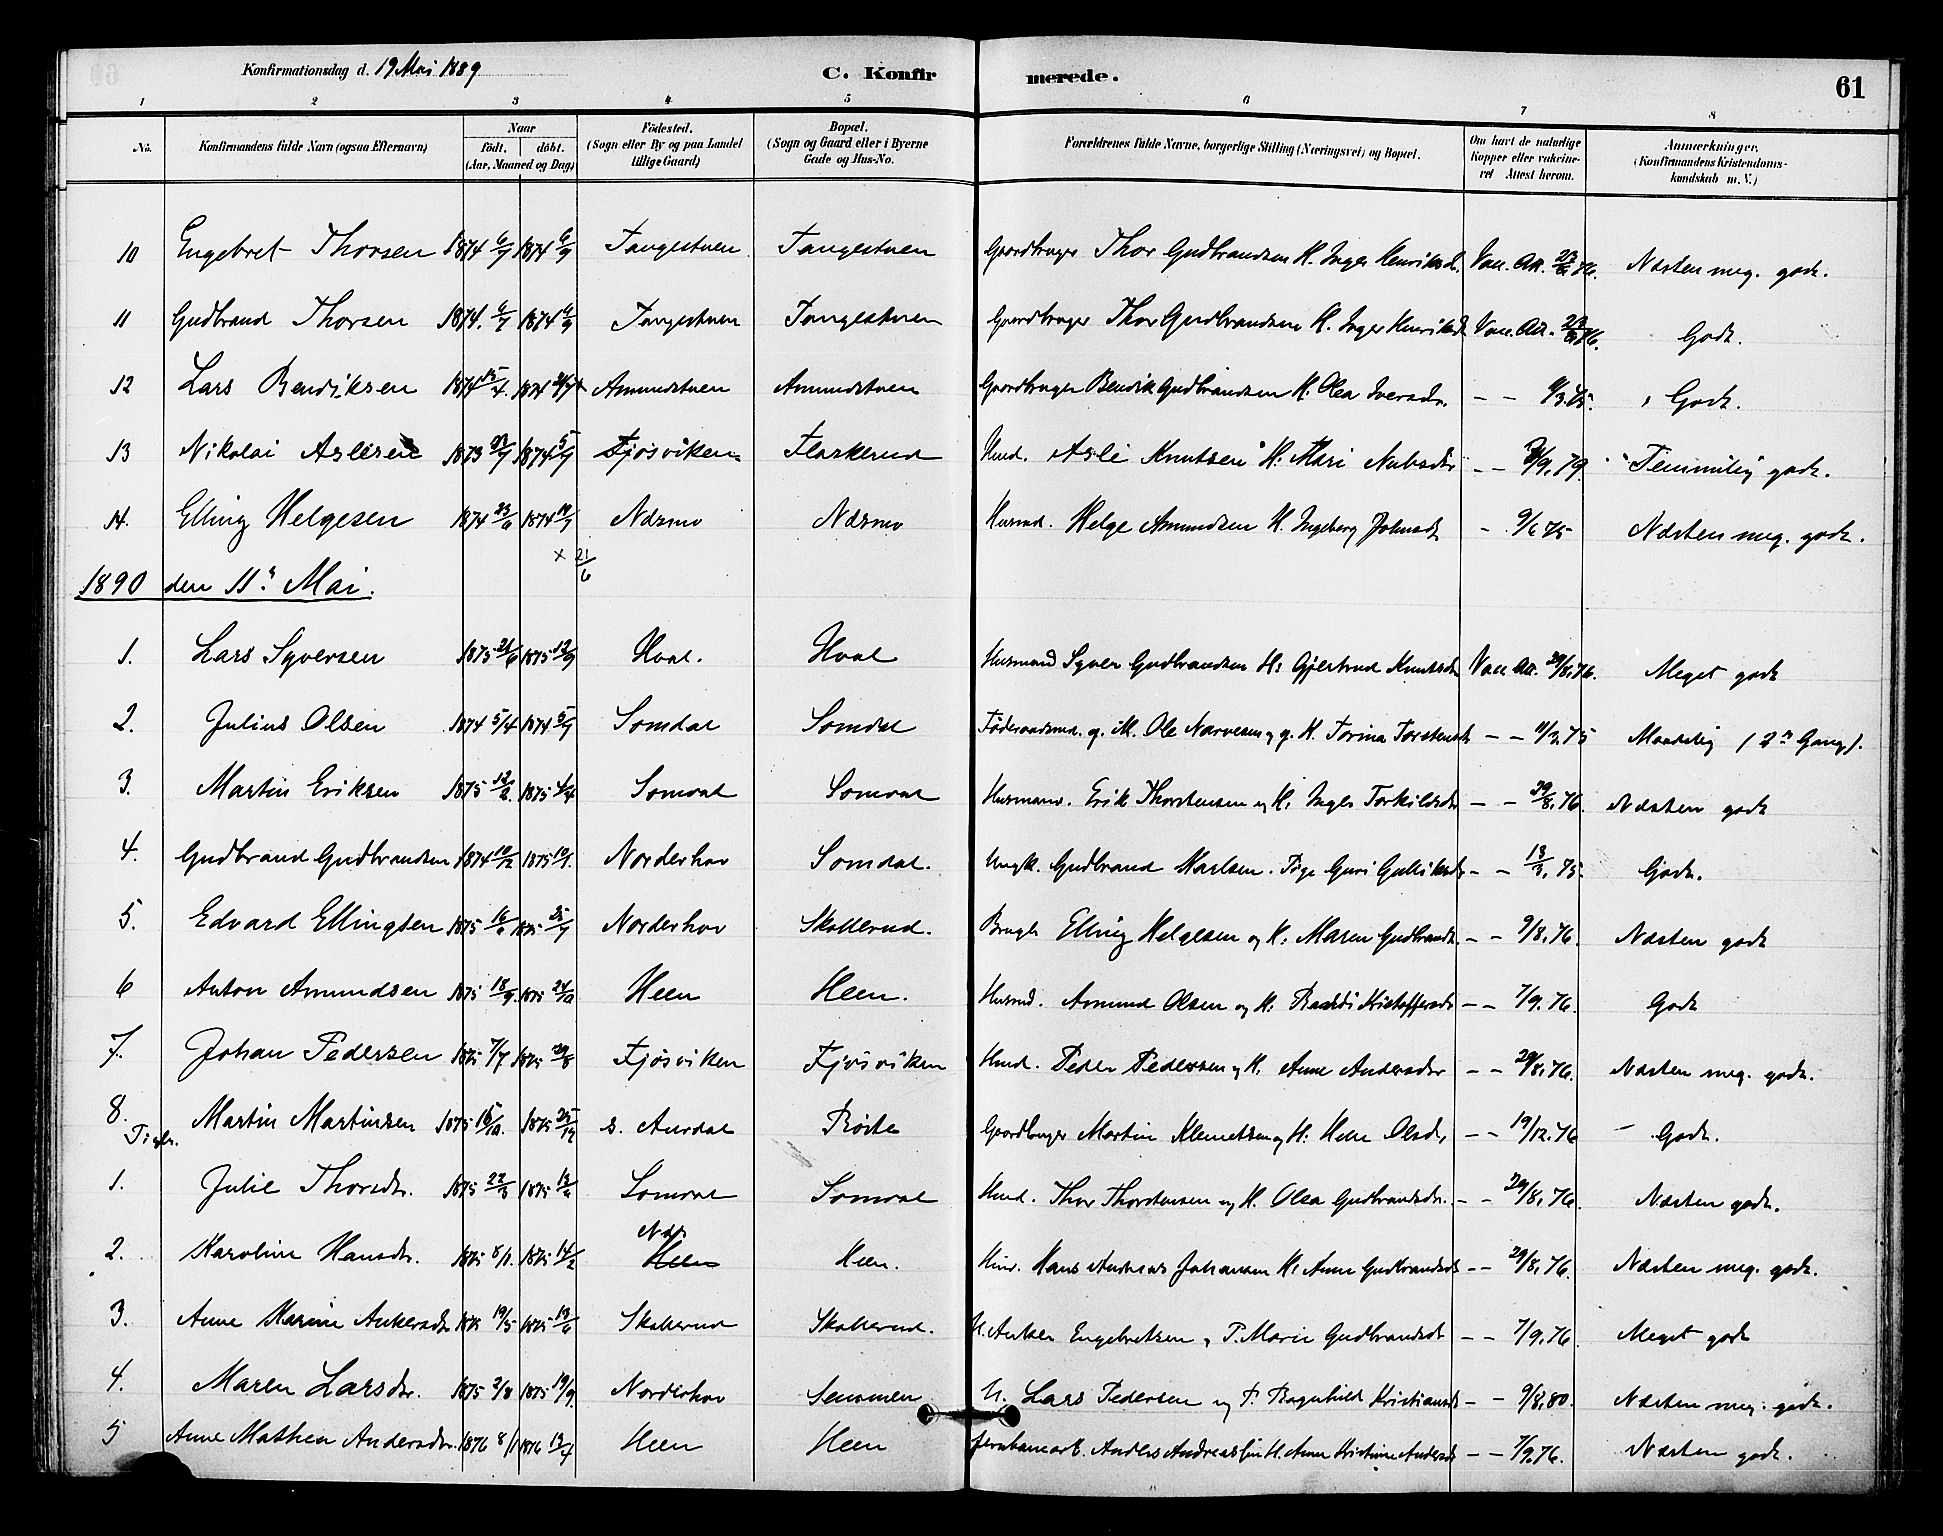 Konfirmationsdag d. 19 Mai 1889 C. Konfirmerede. 61
1 2 3 4 5 6 7 8
No. Konfirmandens fulde Navn (ogsaa Efternavn) Naar födt, döbt. (Aar, Maaned og Dag) Födested. (Sogn eller By og paa Landet tillige Gaard) Bopæl. (Sogn og Gaard eller i Byerne Gade og Hus-No. Forældrenes fulde Navne, borgerlige Stilling (Næringsvei) og Bopæl. Om havt de naturlige Kopper eller vakcineret Attest herom. Anmærkninger. (Konfirmandens Kristendomskundskab m. V.)
10 Engebret Thorsen 1874 6/7 1874 6/9 Tangestuen Tangestuen Gaardbruger Thor Gudbrandsen H. Inger Henriksd. Vac. Att. 76. Næsten meg. godt.
11 Gudbrand Thorsen 1874. 6/7 1874 6/9 Tangestuen Tangestuen Gaardbruger Thor Gudbrandsen H. Inger Henriksdt Vac. Att. 76. Godt.
12 Lars Bendiksen 1874 15/4. 1874 Amundstuen Amundstuen Gaardbruger Bendik Gudbrandsen H. Olea Iversdr. - - 75. Godt.
13 Nikolai Aslesen 1873 1874 Fjösviken Flaskerud Hmd. Asle Knutsen H: Mari Nubsdtr - - /9. 79. Temmelig godt.
14. Elling Helgesen 1874 1874 Næsmo Næsmo Husmd. Helge Amundsen H. Ingeborg Johnsdt - 9/6 75 Næsten meg. godt.
x 21/6
1890 den 11te Mai.
1. Lars Syversen 1875 1875 12/9 Hval. Hval Husmand Syver Gudbrandsen H: Gjertrud Knutsdt Vac. Att. 29/8. 76. Meget godt
2. Julius Olsen 1874 5/4 1874 5/7 Somdal Somdal Föderaadsmd. g. M. Ole Narvesen og g. K. Torina Torstensdt - - 11/3. 75 Maadelig (2n Gang).
3. Martin Eriksen 1875 12/2. 1875 4/4 Somdal Somdal Husmand. Erik Thorstensen og H. Inger Torkildsdt - - 29/8. 76. Næsten godt
4. Gudbrand Gudbrandsen 1874 10/12 1875 10/1. Norderhov Somdal. Ungk. Gudbrand Karlsen. Pige Guri Gulliksdr - - 13/3. 75. Godt.
5. Edvard Ellingsen 1875 1875 25/7 Norderhov Skollerud. Brugb. Elling Helgesen og H: Maren Gudbrandsdt. - - 9/8. 76. Næsten godt
6 Anton Amundsen 1875 18/9. 1875 24/10 Heen Heen. Husmd. Amund Olsen og H: Randi Kristoffersdt - - 7/9. 76. Godt
7. Johan Pedersen 1875 7/7 1875 29/8 Fjösviken Fjösviken Hmd. Peder Pedersen og H. Anne Andersdtr - - 29/8. 76. Næsten meg. godt.
8. Martin Martinsen 1875 1875 25/12 S. Aurdal Röste Gaardbruger Martin Klemetsen og H: Helle Olsdr, - - 19/12. 76 Godt.
Piger.
1. Julie Thorsdr. 1875 22/3 1875 Somdal Somdal Hmd. Thor Thorstensen og H. Olea Gudbrandsdr. - - 29/8. 76. Næsten godt.
2. Karoline Hansdr. 1875 8/1. 1875 14/2 Næs Heen Heen. Hmd. Hans Andreas Johansen H: Anne Gudbrandsdt - - 29/8. 76. Næsten meg. godt.
3. Anne Karine Ankersdtr 1875 19/5 1875 13/6 Skollerud Skollerud. U. Anker Engebretsen og P. Marie Gudbrandsdt - - 7/9. 76. Meget godt
4. Maren Larsdr. 1875 2/8 1875 19/9 Norderhov Semmen U. Lars Pedersen og P. Ragnhild Kristiansdt - - 9/8. 80. Næsten meg. godt.
5 Anne Mathea Andersdr. 1876 8/1 1876 Heen Heen Jernbanearb. Anders Andreassen H. Anne Kristine Andersdt - - 7/9. 76. Næsten godt.